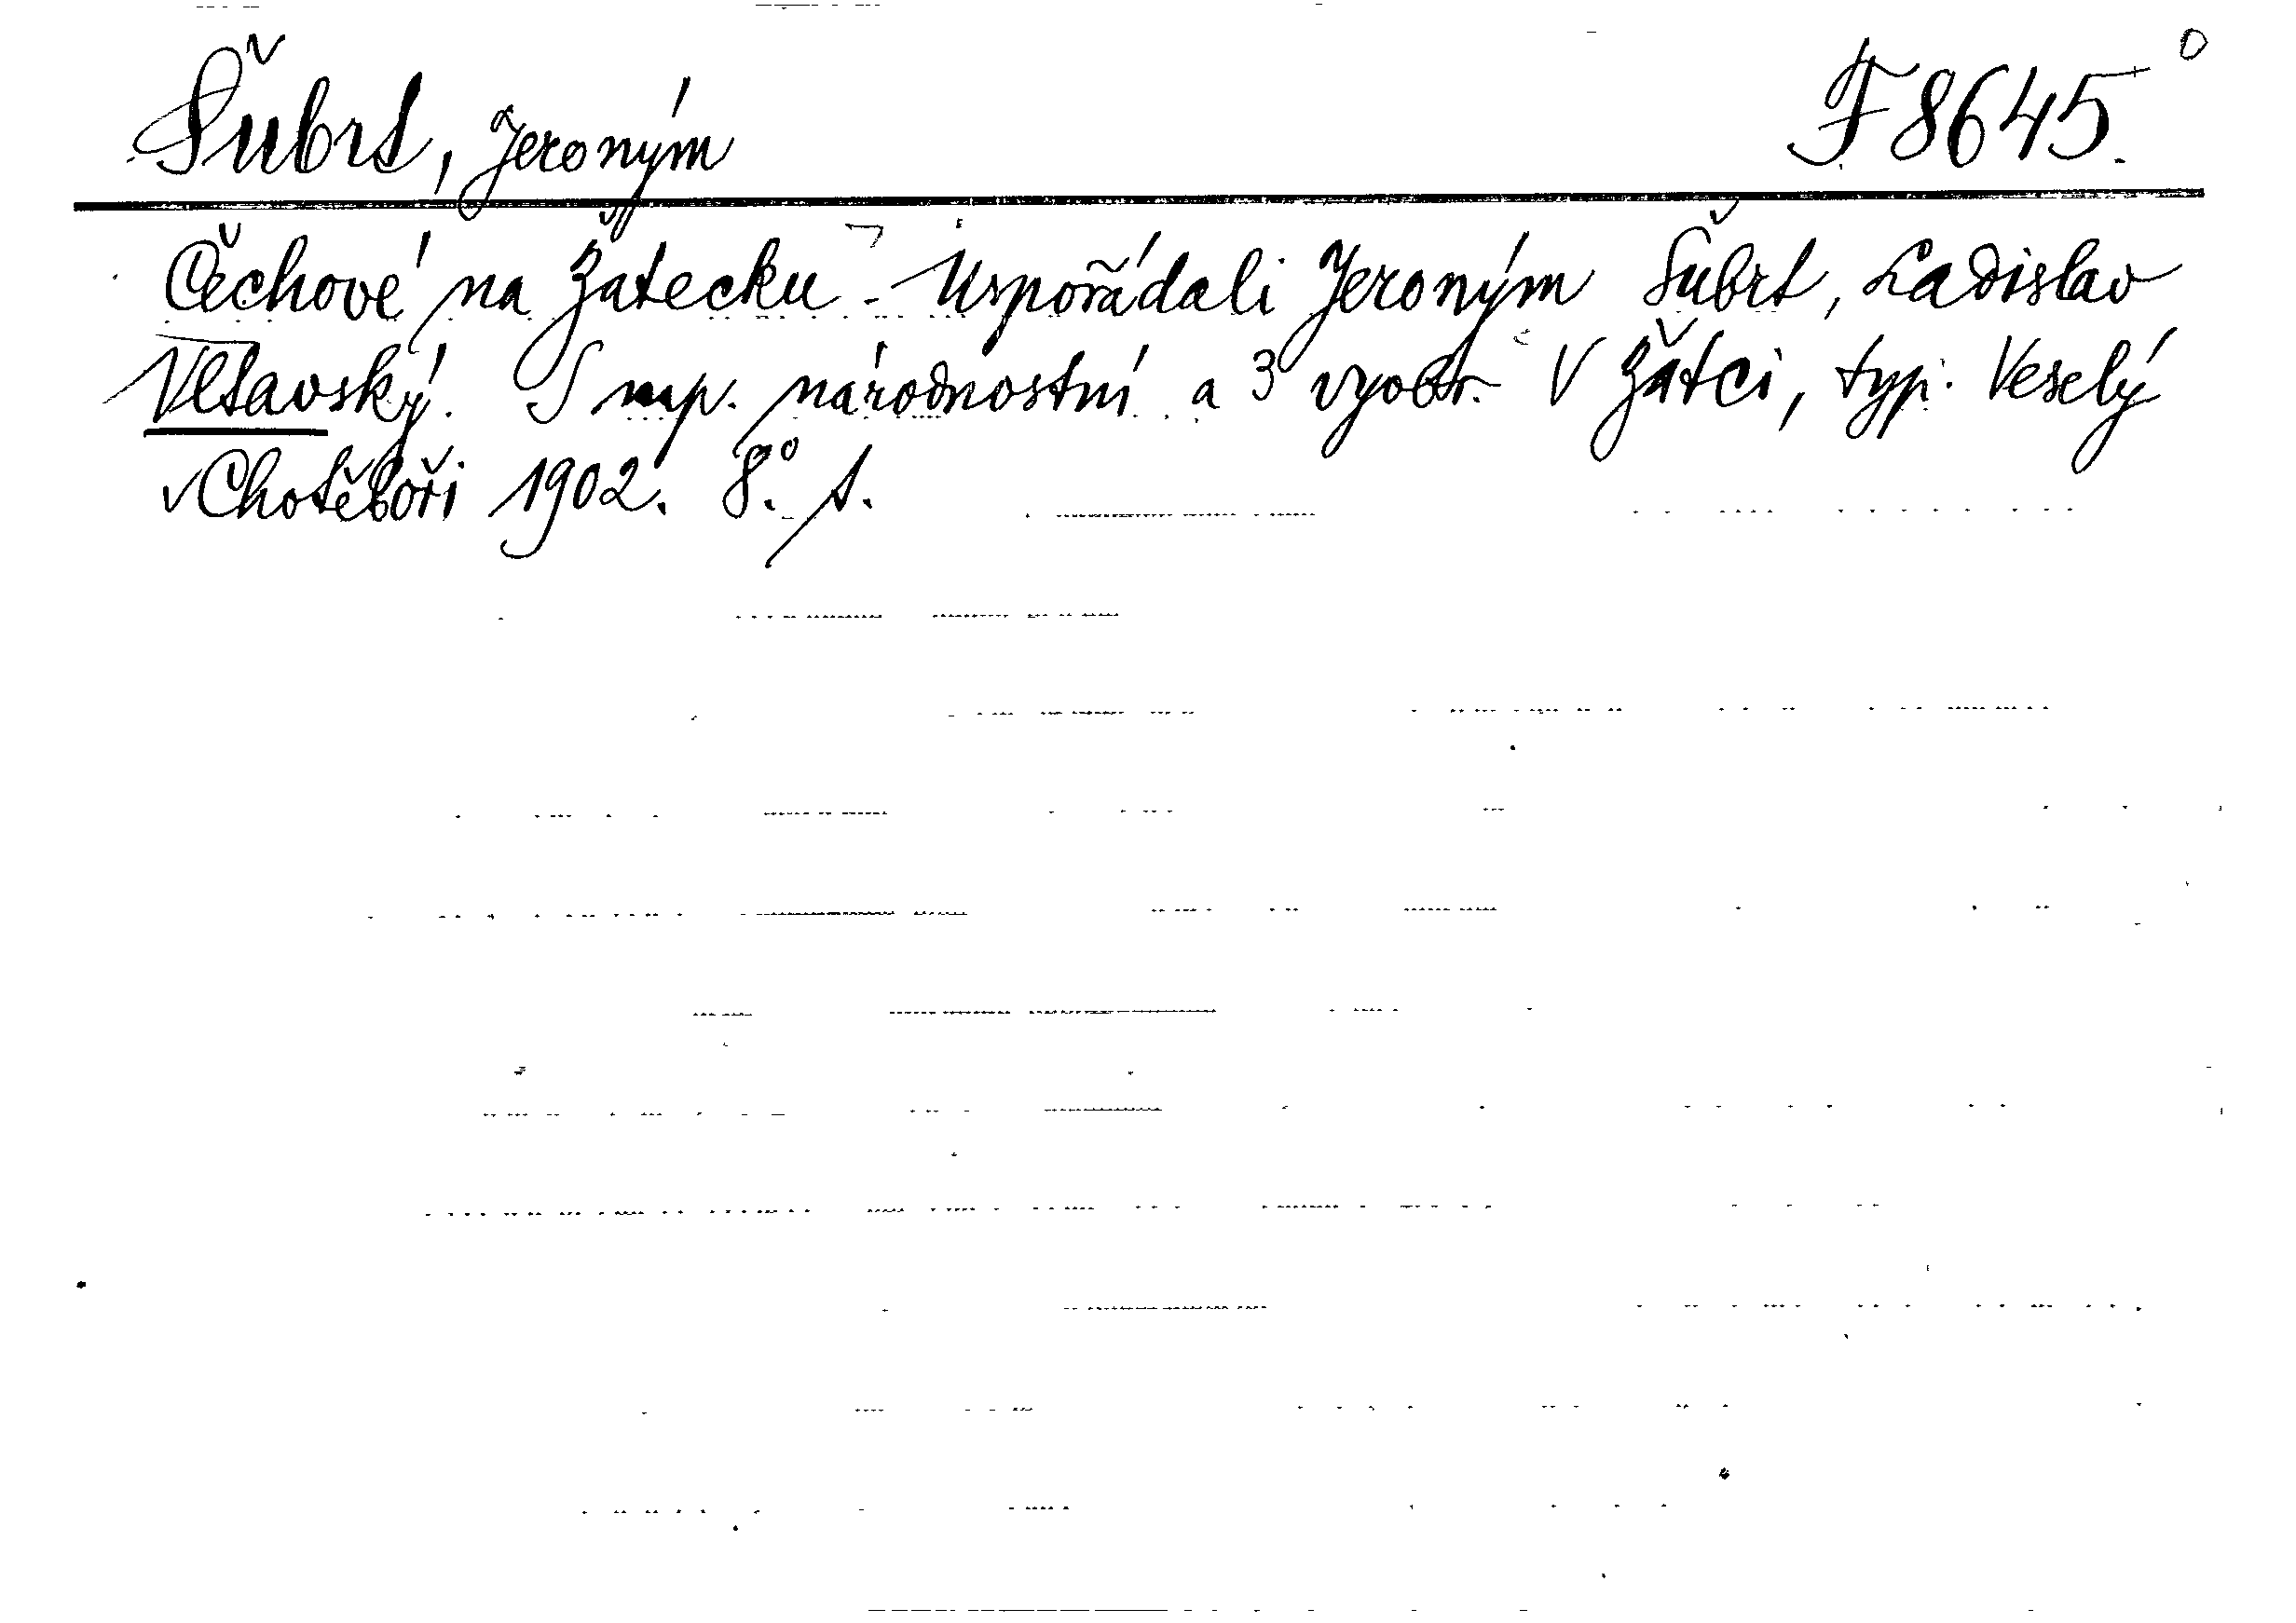 Šubrt, Jeroným F 8645.
Čechové na Žatecku - Uspořádali Jeroným Šubrt, Ladislav
Vltavský. S map. národnostní a 3 vyobr. V Žatci, typ. Veselý
v Chotěboři 1902. 8.° s.